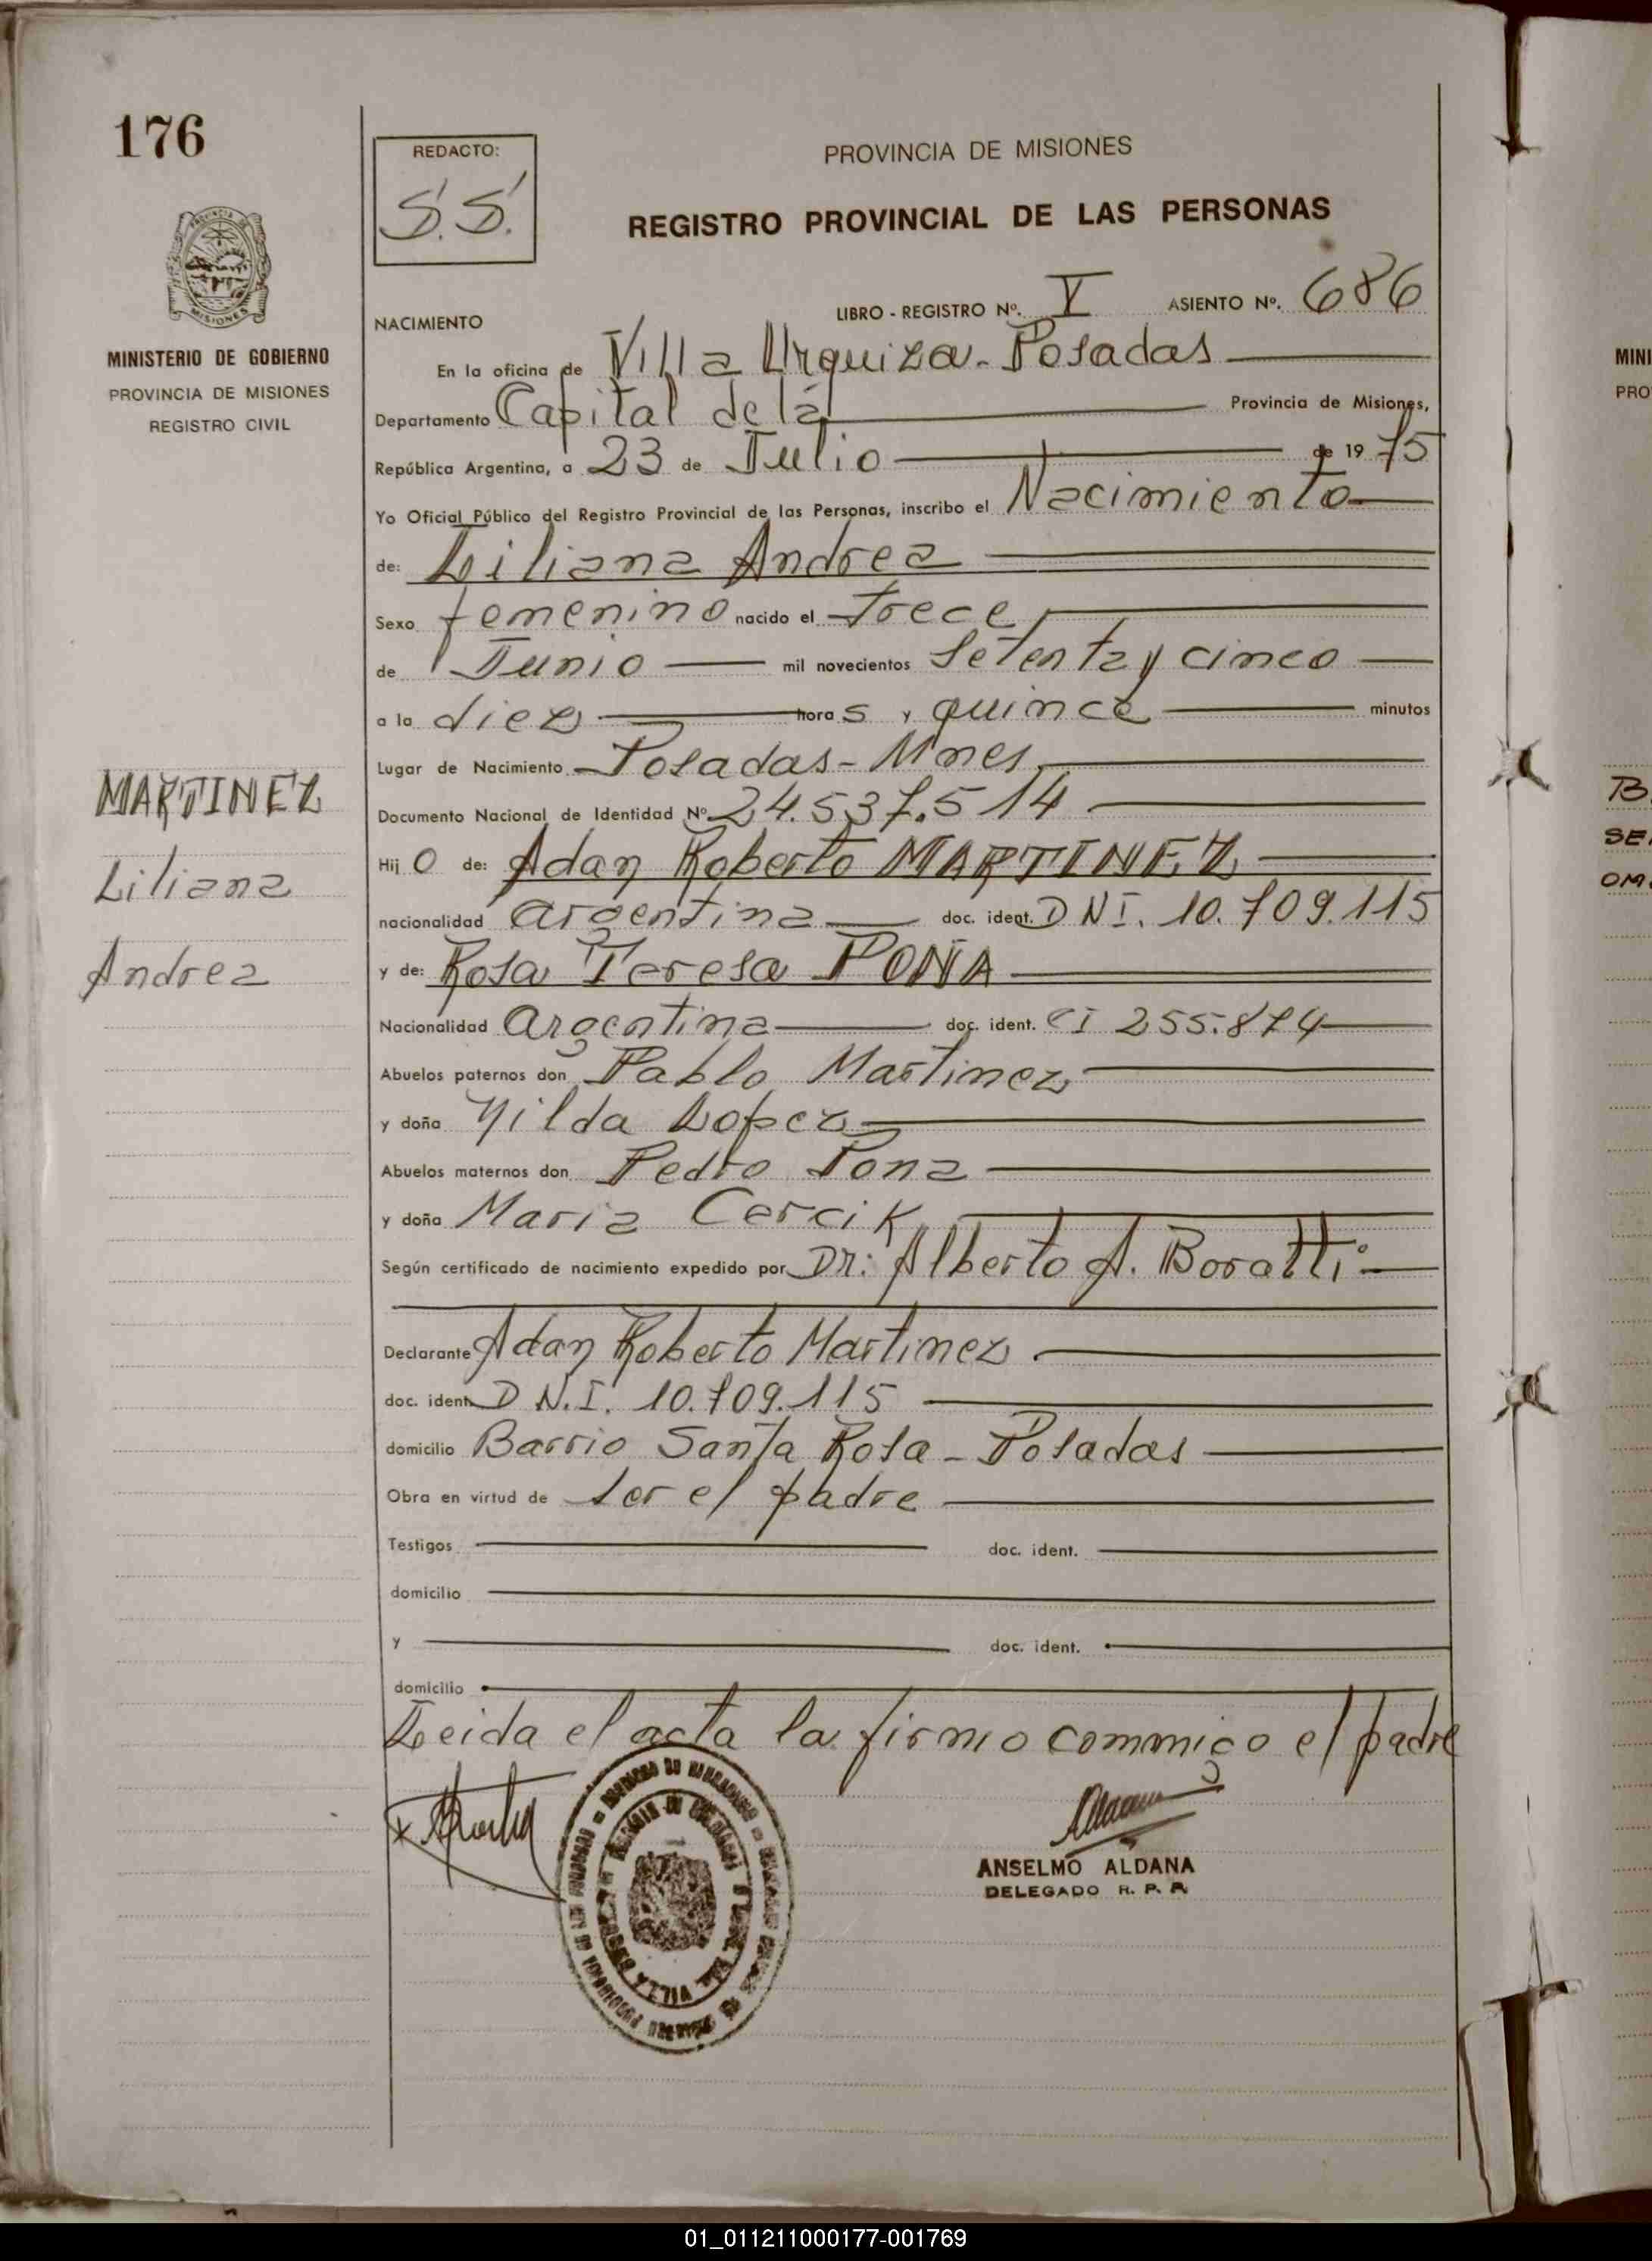 176
REDACTO:
S.S.
PROVINCIA DE MISIONES
REGISTRO PROVINCIAL DE LAS PERSONAS
MINISTERIO DE GOBIERNO
PROVINCIA DE MISIONES
REGISTRO CIVIL
NACIMIENTO
LIBRO - REGISTRO Nº. V ASIENTO Nº. 686
En la oficina de Villa Urquiza - Posadas
Departamento Capital de la Provincia de Misiones,
República Argentina, a 23 de Julio de 1975
Yo Oficial Público del Registro Provincial de las Personas, inscribo el Nacimiento
de: Liliana Andrea
Sexo femenino nacido el trece
de Junio mil novecientos setenta y cinco
a la diez horas y quince minutos
Lugar de Nacimiento Posadas - Mnes
Documento Nacional de Identidad Nº 24.537.514
Hijo de: Adan Roberto MARTINEZ
nacionalidad argentina doc. ident. DNI. 10.709.115
y de: Rosa Teresa POÑA
Nacionalidad argentina doc. ident. CI 255.874
Abuelos paternos don Pablo Martinez
y doña Nilda Lopez
Abuelos maternos don Pedro Pona
y doña Maria Cercik
Según certificado de nacimiento expedido por Dr: Alberto A. Boratti
Declarante Adan Roberto Martinez
doc. ident. D N.I. 10.709.115
domicilio Barrio Santa Rosa - Posadas
Obra en virtud de ser el padre
Testigos doc. ident.
domicilio
y doc. ident.
domicilio
Leida el acta la firmo commigo el padre
ANSELMO ALDANA
DELEGADO R. P. P.
VILLA
MARTINEZ
Liliana
Andrea
MINI
PRO
B.
SE
OM
01_011211000177-001769